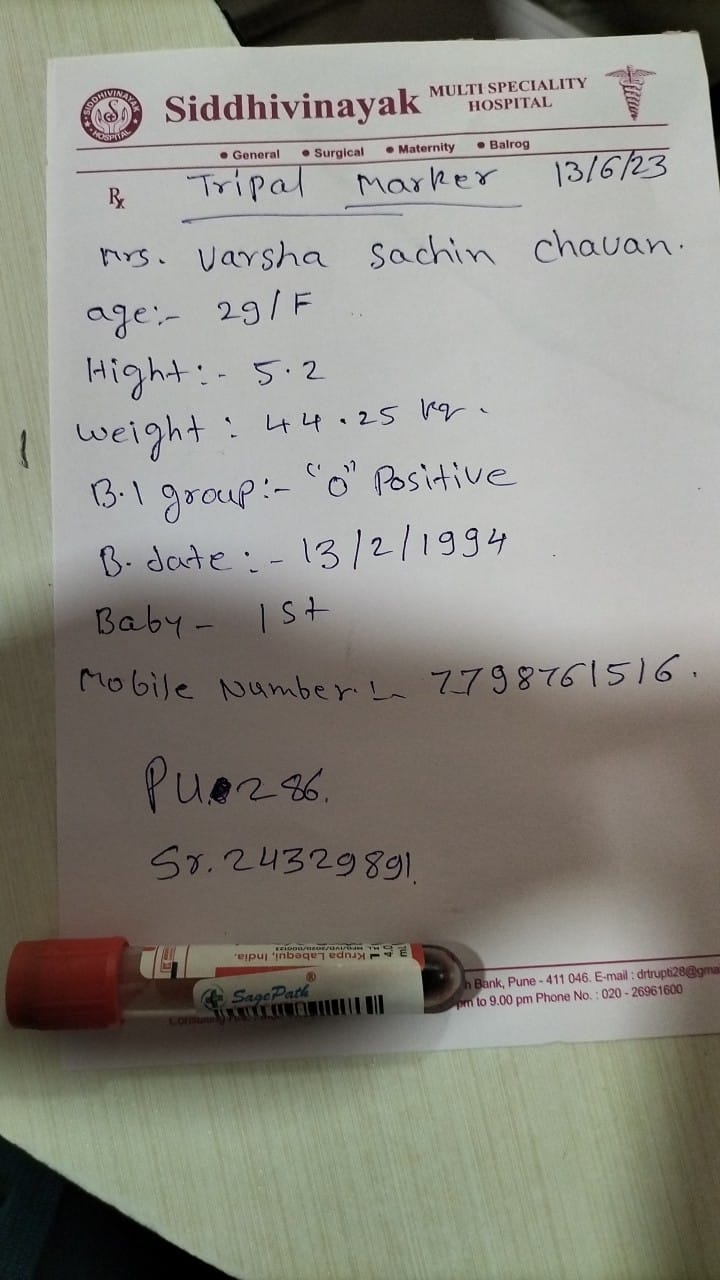 SIDDHIVINAYAK
HOSPITAL
Siddhivinayak MULTI SPECIALITY HOSPITAL
• General • Surgical • Maternity • Balrog
Rx Tripal Marker 13/6/23
Mrs. Varsha Sachin Chavan.
age:- 29/F
Hight:- 5.2
Weight: 44.25 kg.
B.l group:- "O" Positive
B. date:- 13/2/1994
Baby- 1st
Mobile Number:- 7798761516.
PU 286.
Sr. 24329891.
Krupa Labequi, India.
SagePath ®
h Bank, Pune - 411 046. E-mail : drtrupti28@gma
pm to 9.00 pm Phone No. : 020 - 26961600